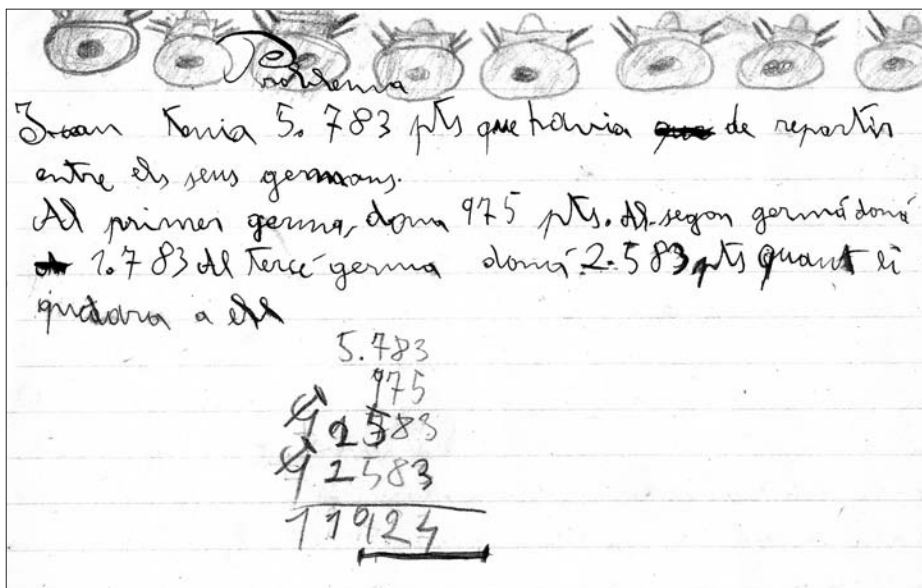 Problema
Joan tenia 5.783 pts que havia de repartir
entre els seus germans.
Al primer germa, dona 975 pts. Al segon germá doná
1.783 Al tercé germa doná 2.583 pts quant li
quedara a ell
5.783
975
583
2583
11924